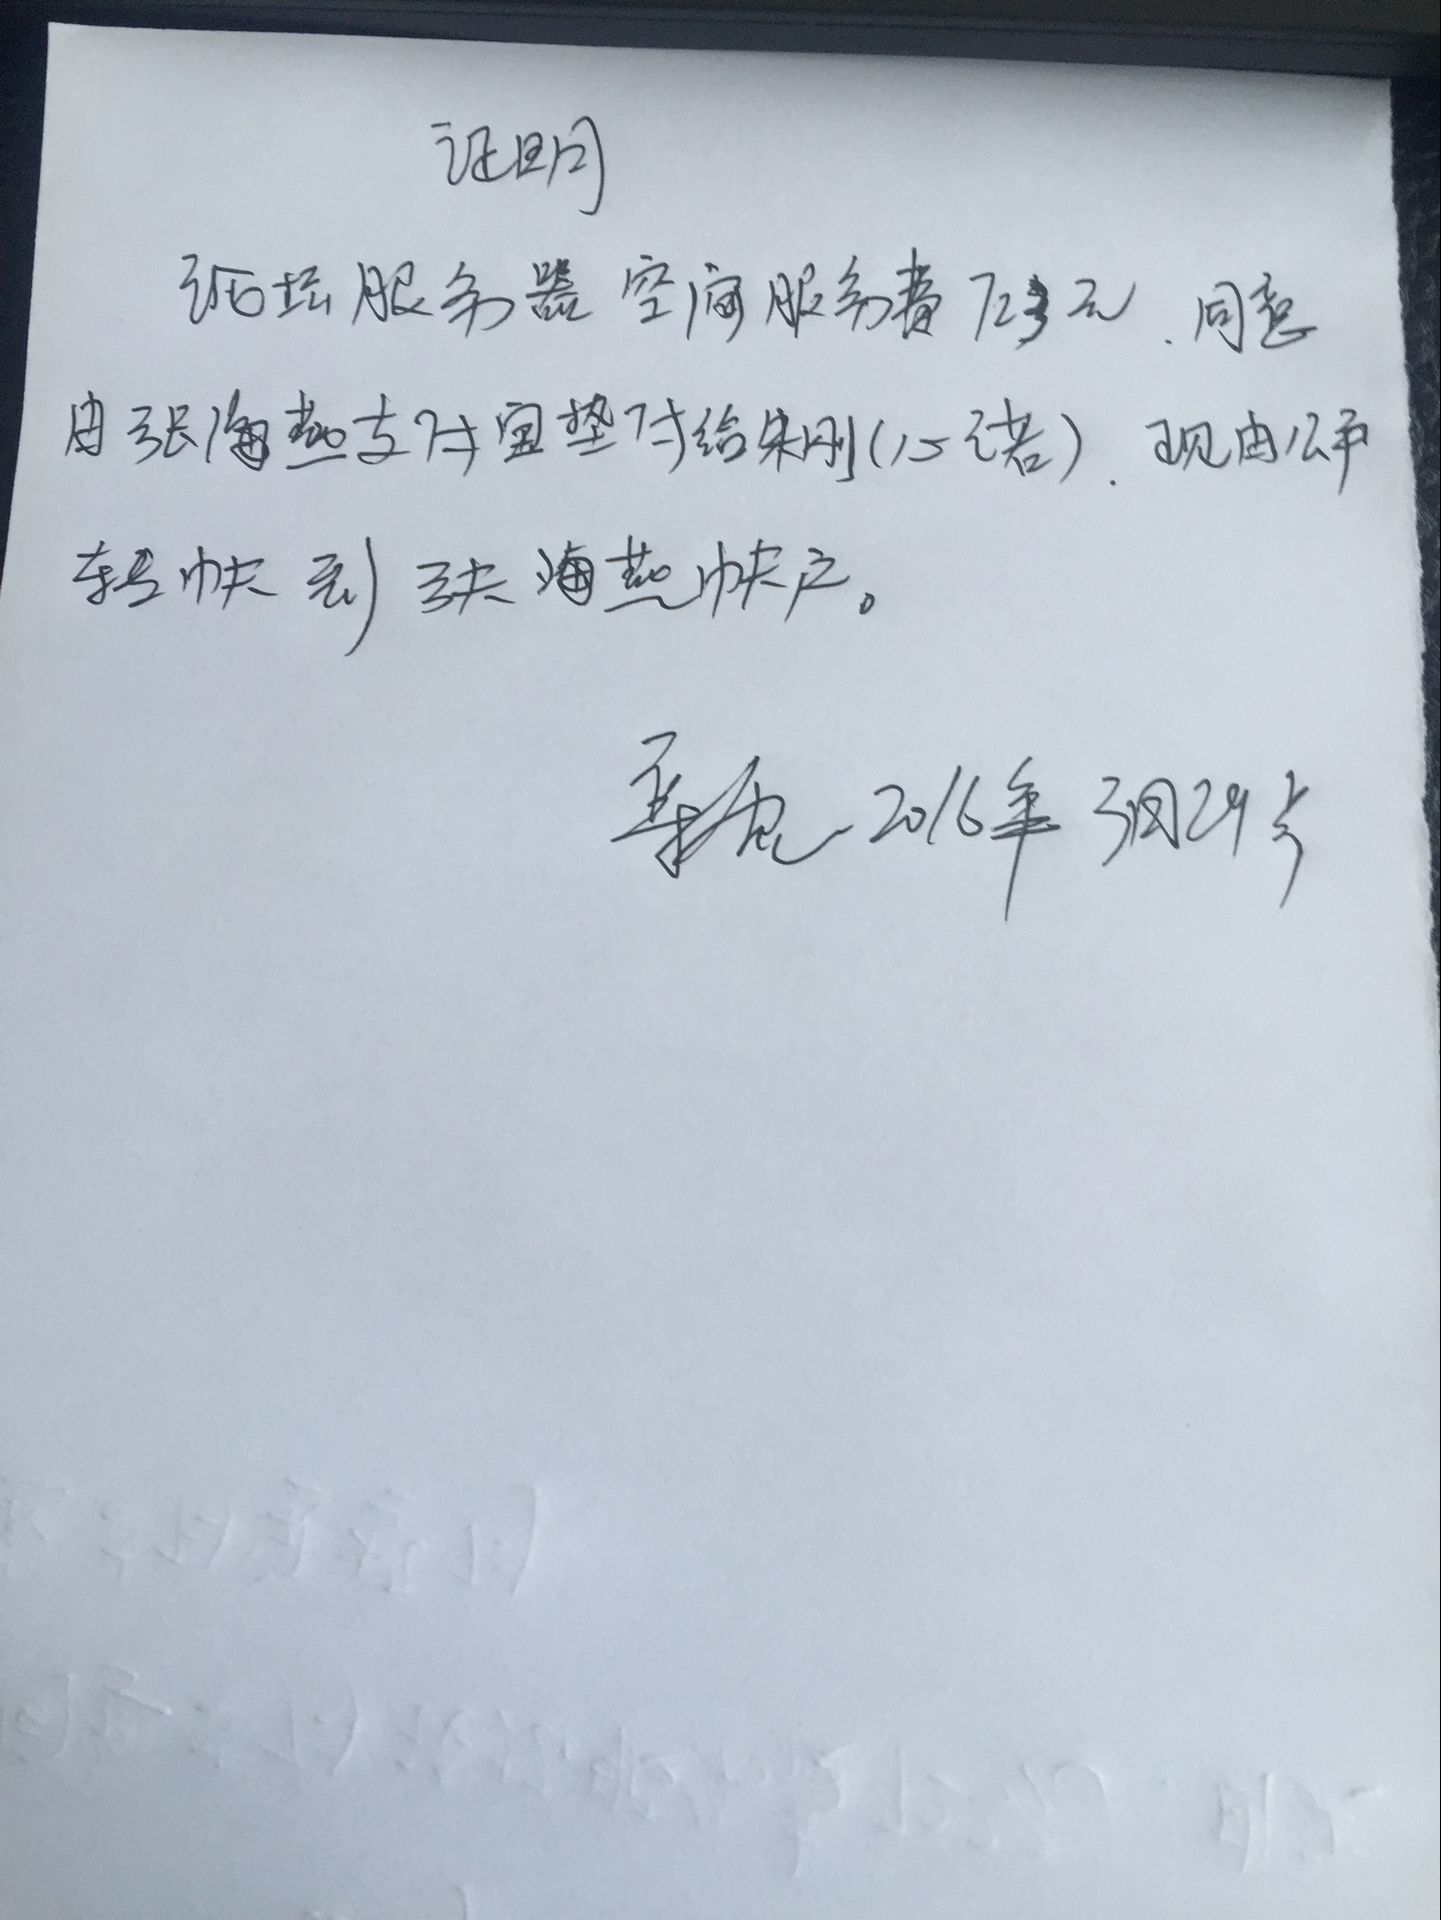 证明
论坛服务器空间服务费723元、同意
由张海燕支付宝垫付给朱刚(一诺)、现由公户
转帐到张海燕帐户。
2016年3月29号